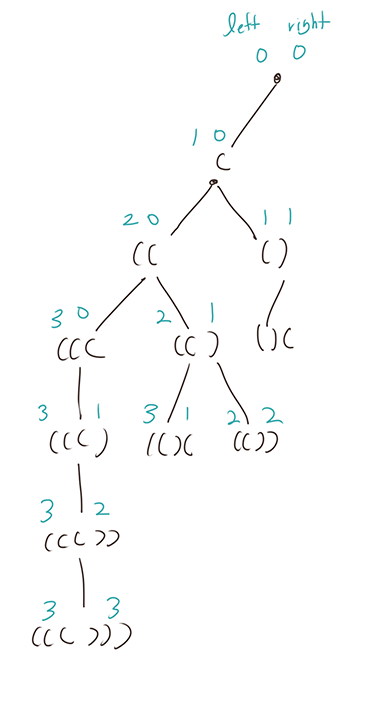 left right
0 0
1 0
(
2 0 1 1
(( ()
3 0 2 1
((( (() ()(
3 1 3 1 2 2
((() (()( (())
3 2
((())
3 3
((()))